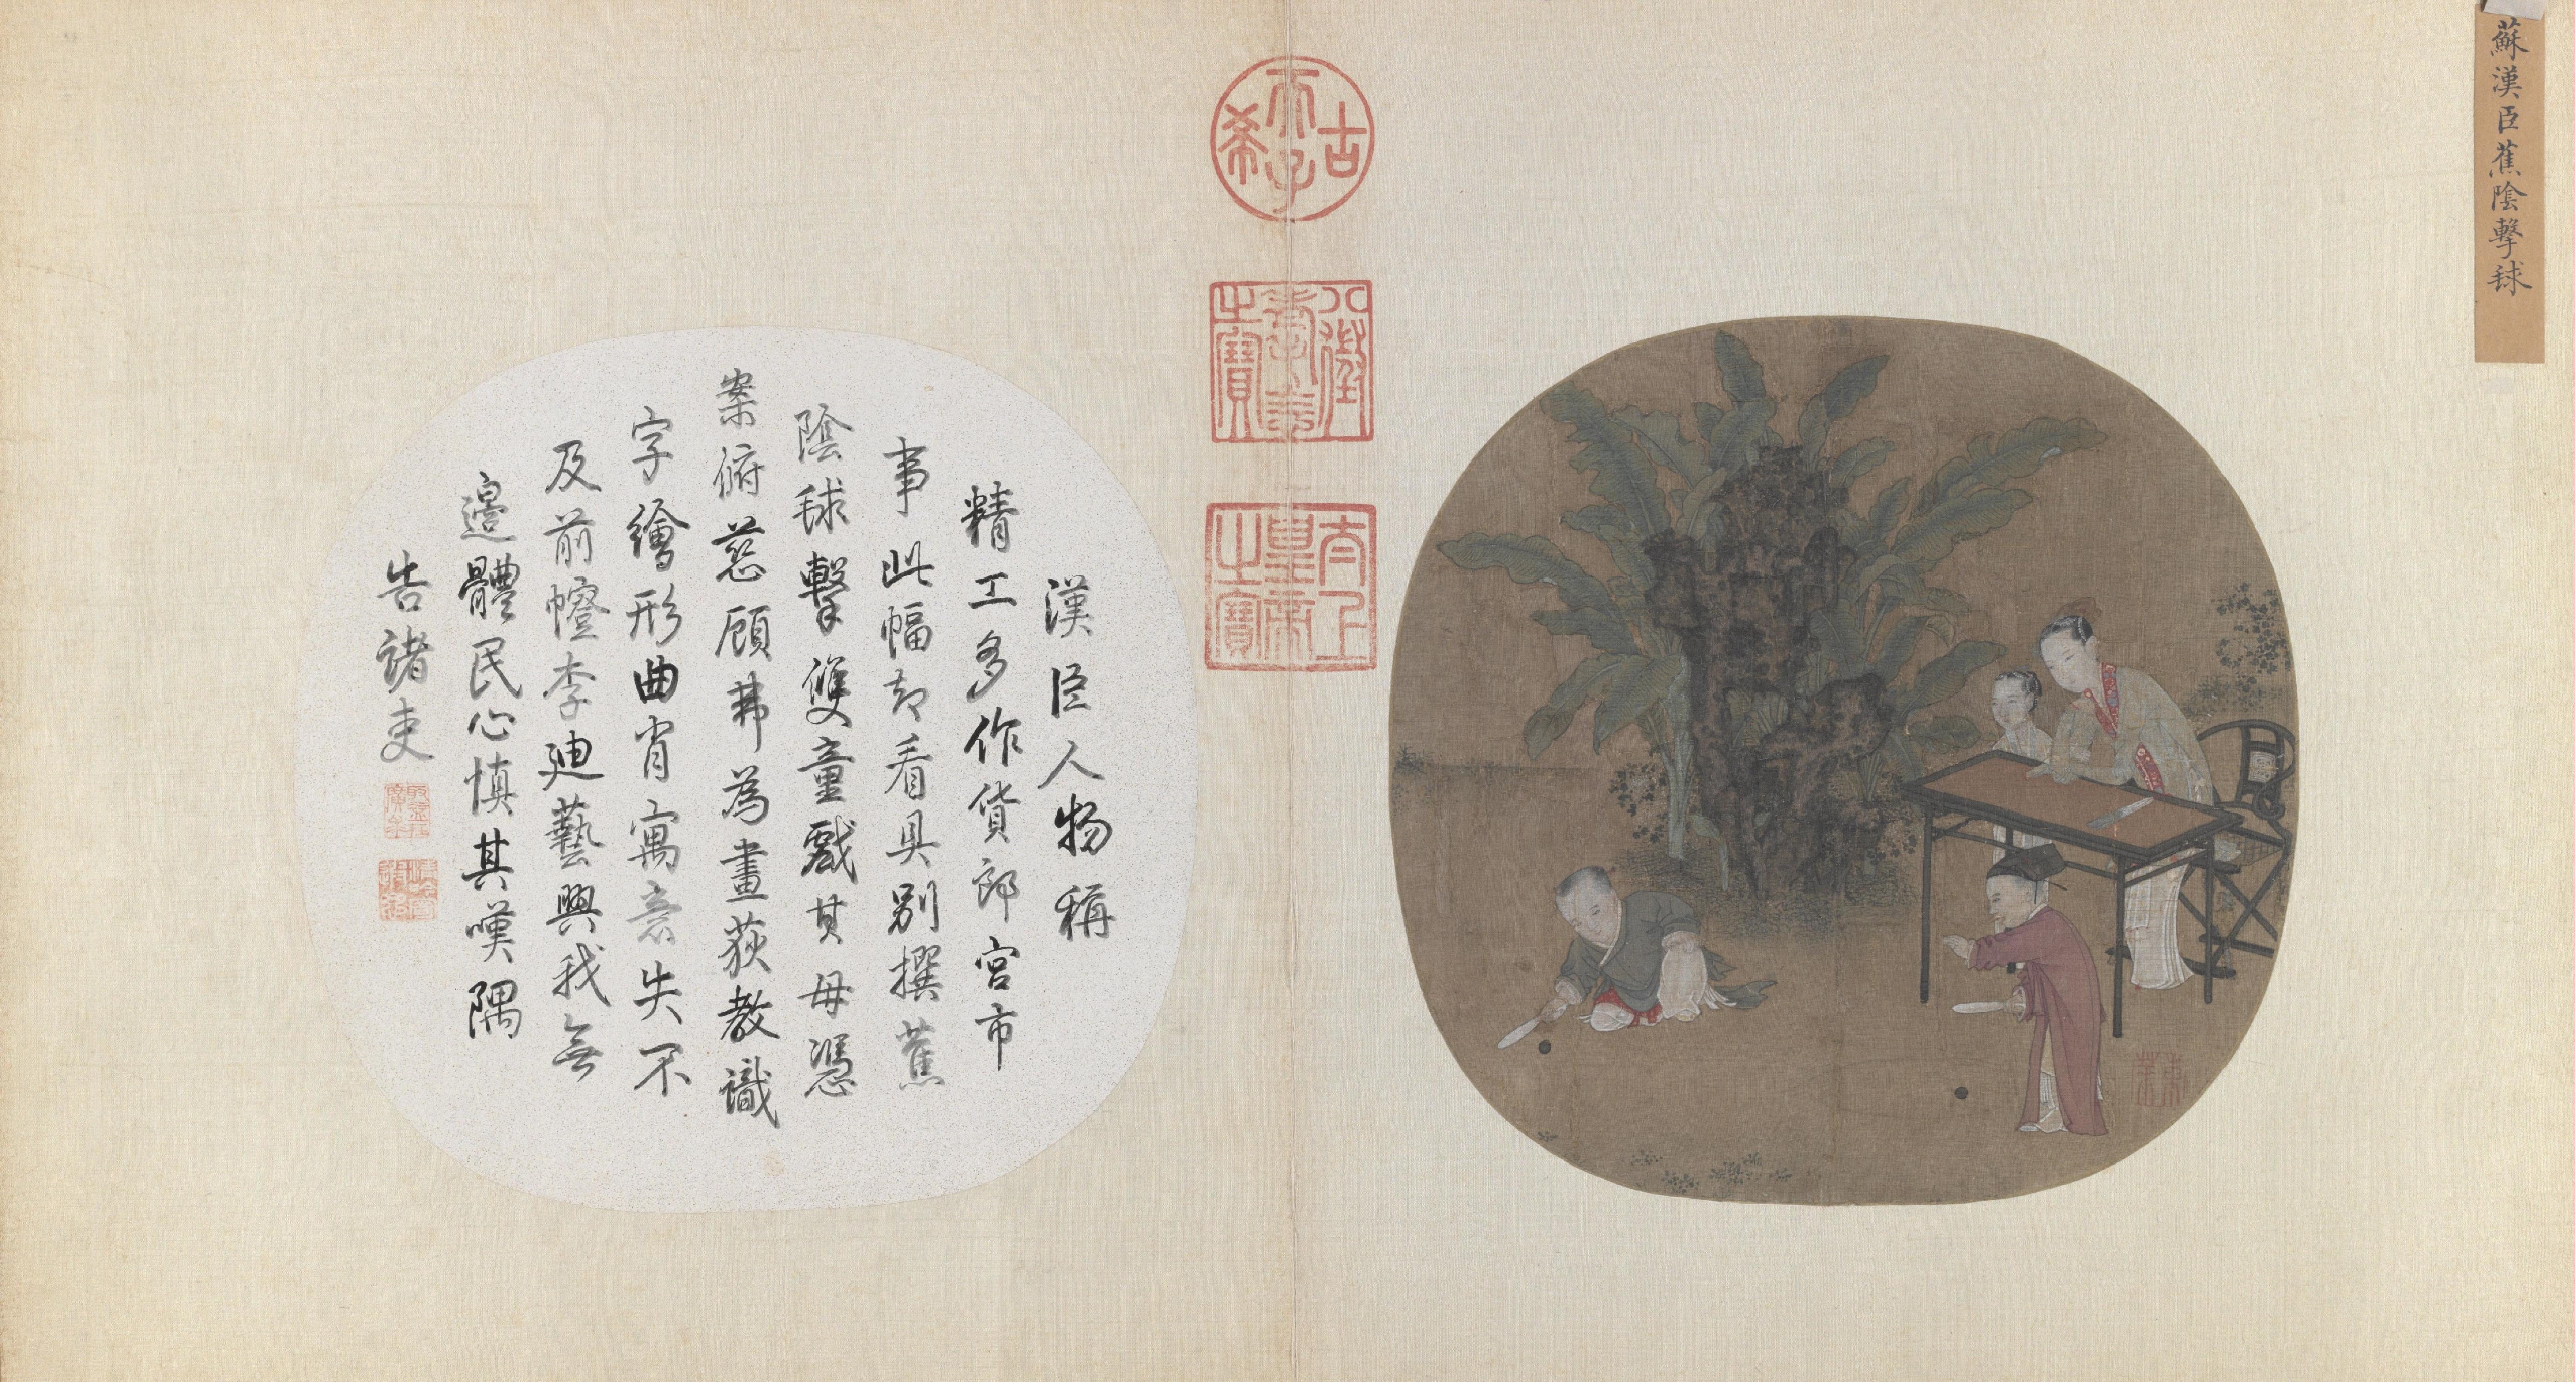 蘇漢臣蕉陰擊毬
古希天子
八徵耄念之寶
太上皇帝之寶
漢臣人物稱
精工多作貨郎宮市
事此幅却看具別撰蕉
陰毬擊雙童戲其母憑
案俯慈顧弗為畫荻教識
字繪形曲肖寓意失不
及前幨李迪藝興我無
邊體民心慎其嘆隅
告諸吏